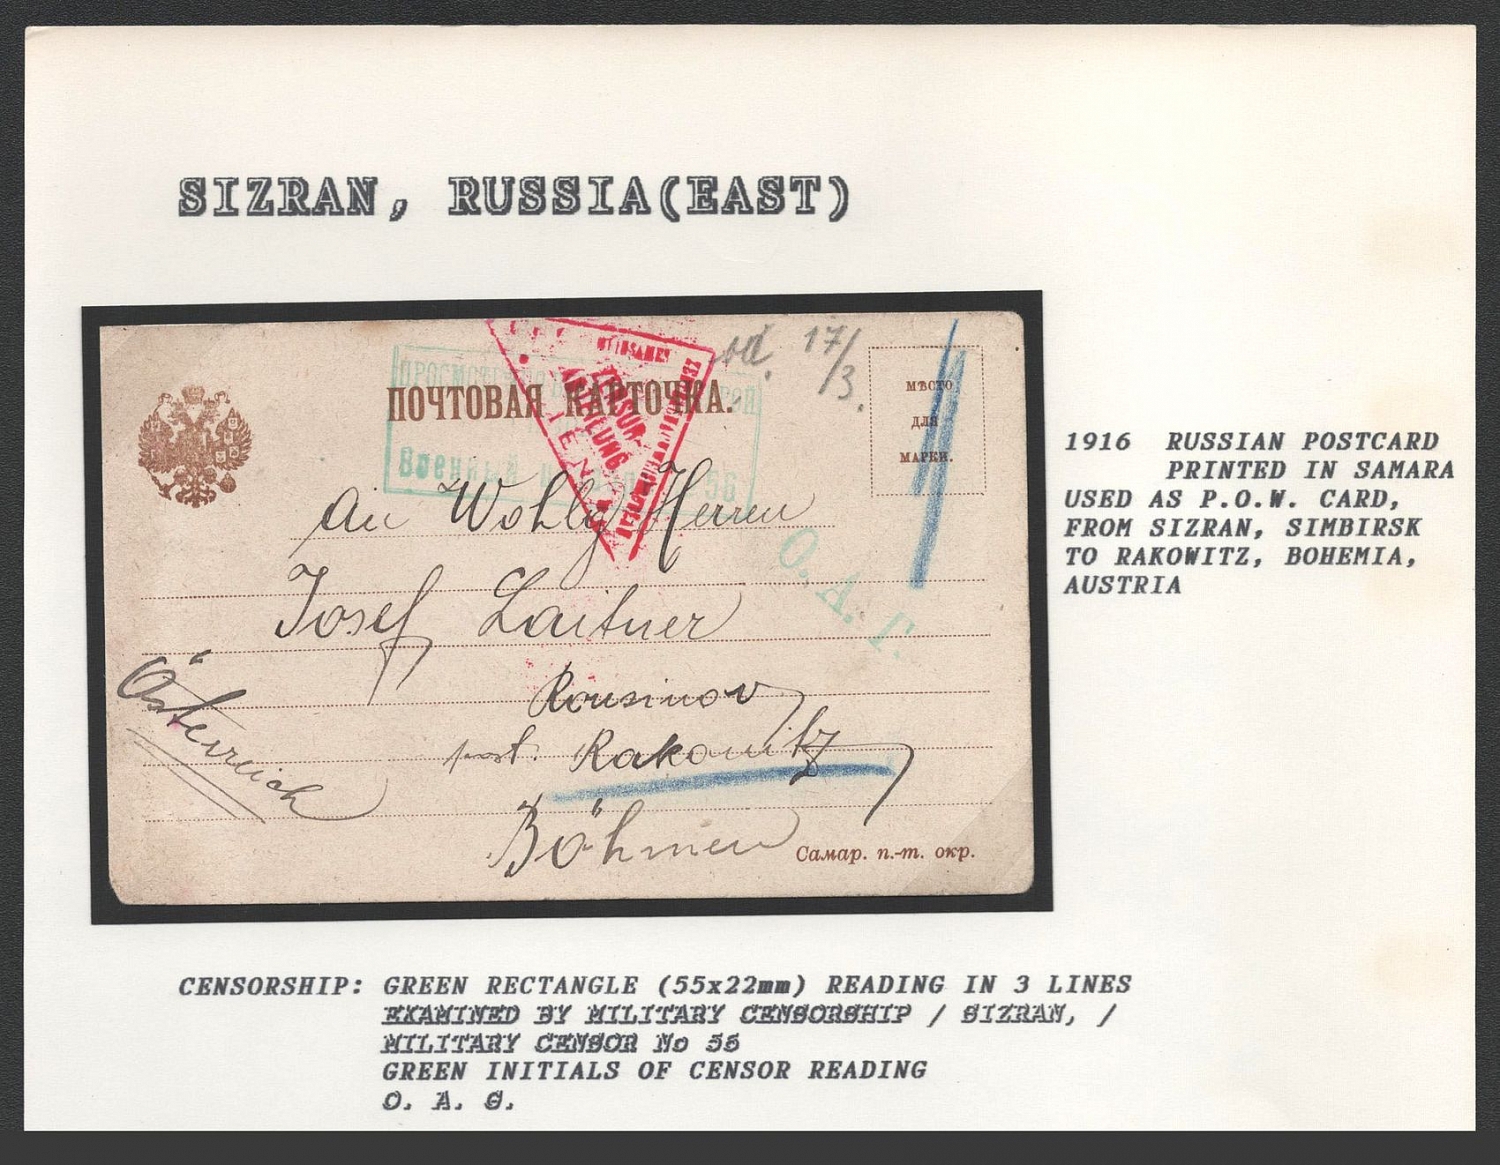 SIZRAN, RUSSIA(EAST)
ПОЧТОВАЯ КАРТОЧКА.
17/3.
МѢСТО
ДЛЯ
МАРКИ.
Военный
56
ZENSUR
ABTEILUNG
WIEN
An Wohlg Herren
O. А. Г.
Josef Laitner
Österreich
Rousinov
post. Rakonitz
Böhmen
Самар. п.-т. окр.
1916 RUSSIAN POSTCARD
PRINTED IN SAMARA
USED AS P.O.W. CARD,
FROM SIZRAN, SIMBIRSK
TO RAKOWITZ, BOHEMIA,
AUSTRIA
CENSORSHIP: GREEN RECTANGLE (55x22mm) READING IN 3 LINES
EXAMINED BY MILITARY CENSORSHIP / SIZRAN, /
MILITARY CENSOR No 56
GREEN INITIALS OF CENSOR READING
O. A. G.